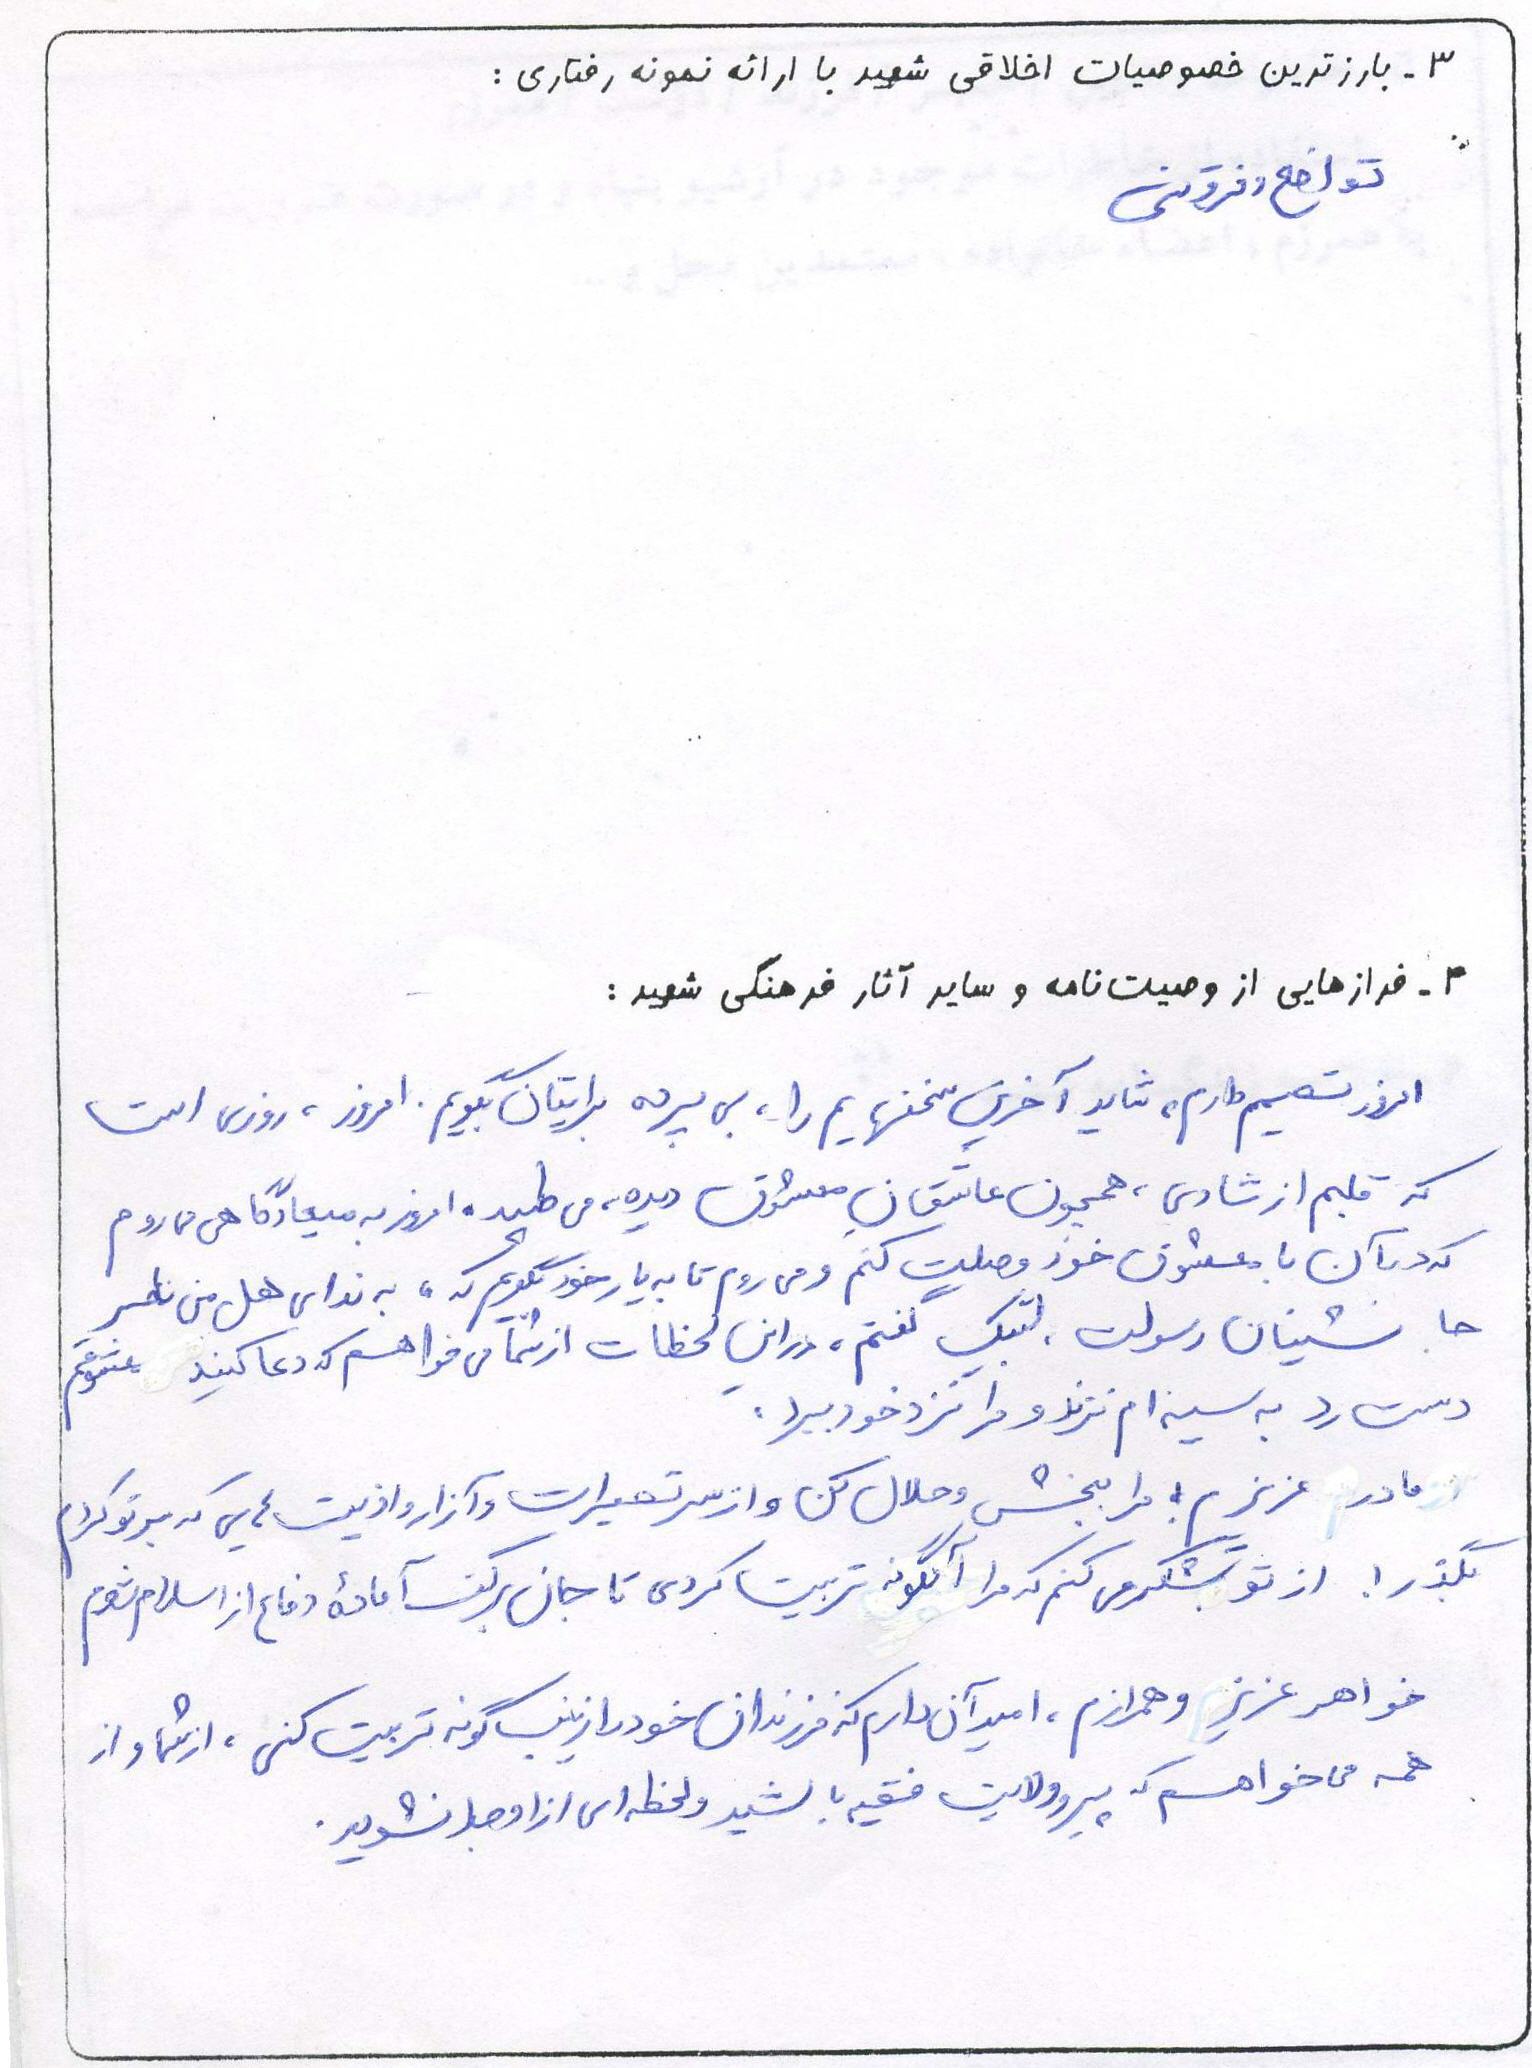 ۳- بارزترین خصوصیات اخلاقی شهید با ارائه نمونه رفتاری :
تواضع و فروتنی
۴- فرازهایی از وصیت‌نامه و سایر آثار فرهنگی شهید :
امروز تصمیم دارم، شاید آخرین سخنهایم را، بی پرده برایتان بگویم. امروز، روزی است
که قلبم از شادی، همچون عاشقان معشوق دیده، می طپد. امروز به میعادگاهی می روم
که در آن با معشوق خود وصلت کنم و می روم تا به یار خود بگویم که، به ندای هل من ناصر
جانشینان رسولت، لبّیک گفتم، در این لحظات از شما می خواهم که دعا کنید معشوقم
دست رد به سینه ام نزند و مرا نزد خود ببرد.
مادر عزیزم! مرا ببخش و حلال کن و از سر تقصیرات و آزار و اذیت هایی که بر تو کردم
بگذر! از تو تشکر می کنم که مرا آنگونه تربیت کردی تا جان بر کف آمادهٔ دفاع از اسلام شوم
خواهر عزیز و همرازم، امید آن دارم که فرزندان خود را زینب گونه تربیت کنی، از شما و از
همه می خواهم که پیرو ولایت فقیه باشید و لحظه ای از او جدا نشوید.